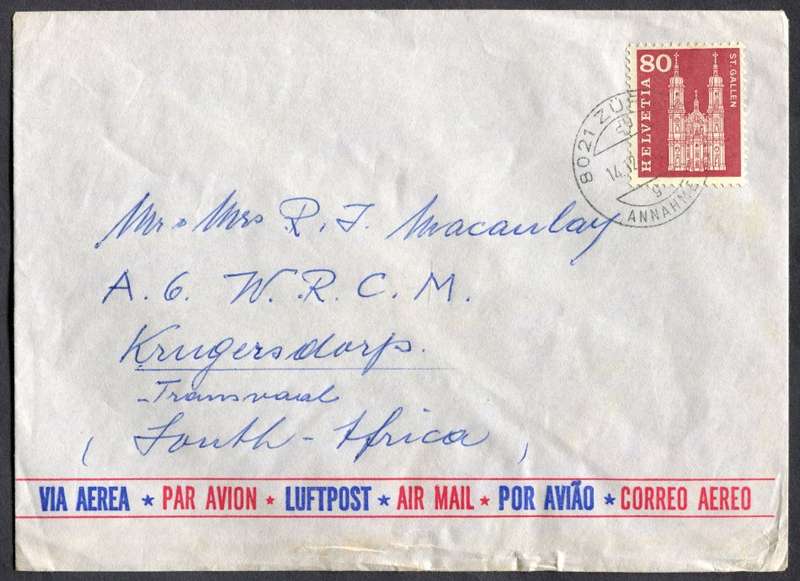 80
HELVETIA
ST. GALLEN
8021 ZÜ
14.12
9
ANNAHME
Mr & Mrs R. J. Macaulay
A. 6. W. R. C. M.
Krugersdorp.
Transvaal
( South-Africa )
VIA AEREA * PAR AVION * LUFTPOST * AIR MAIL * POR AVIÃO * CORREO AEREO